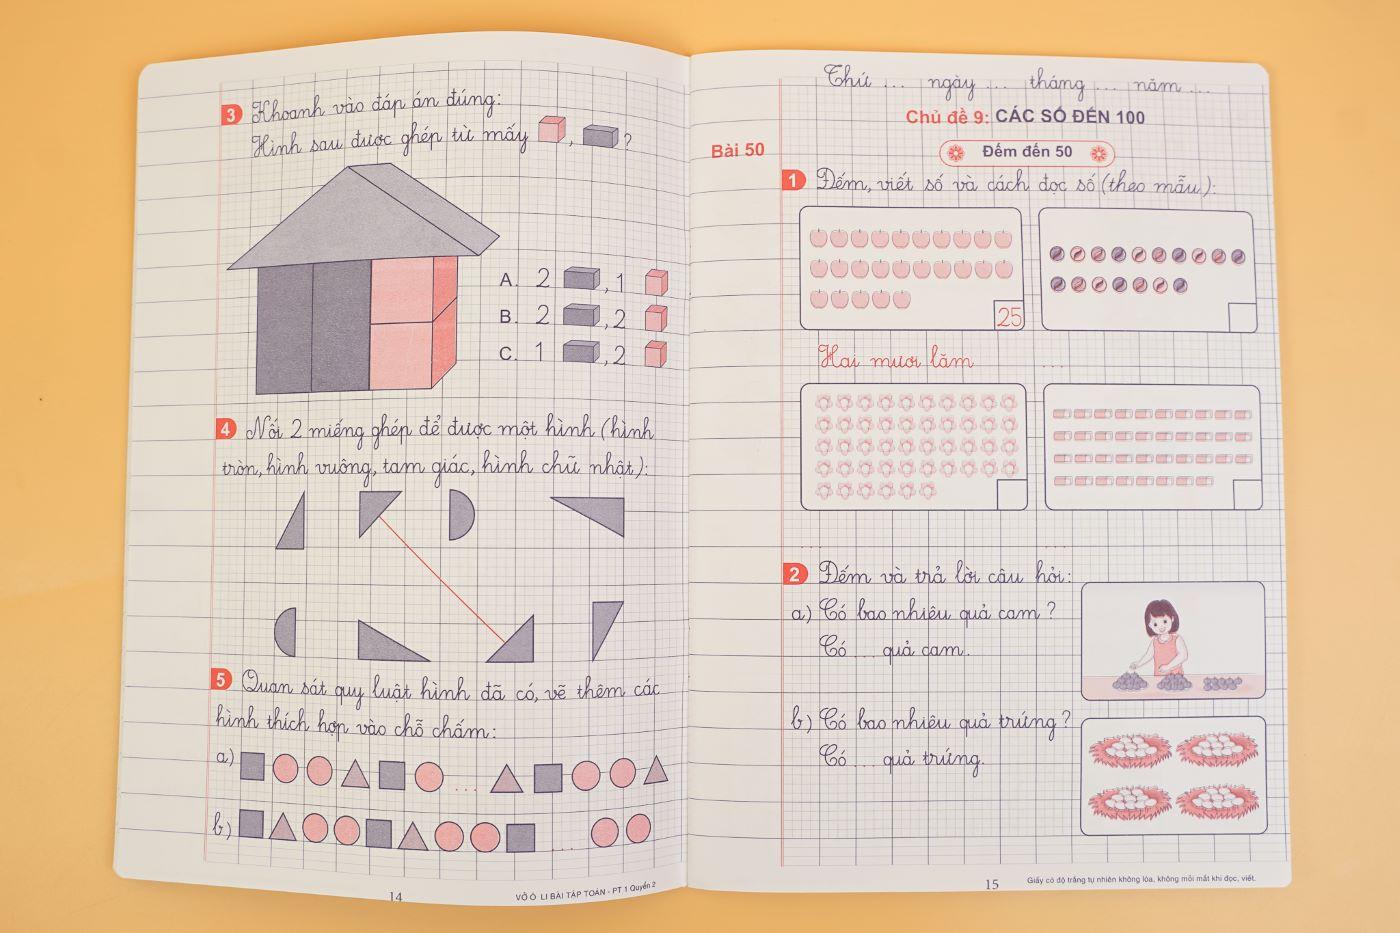 3 Khoanh vào đáp án đúng:
Hình sau được ghép từ mấy , ?
A. 2 , 1
B. 2 , 2
C. 1 , 2
4 Nối 2 miếng ghép để được một hình (hình
tròn, hình vuông, tam giác, hình chữ nhật):
5 Quan sát quy luật hình đã có, vẽ thêm các
hình thích hợp vào chỗ chấm:
a) ...
b) ...
14
VỞ Ô LI BÀI TẬP TOÁN - PT 1 Quyển 2
Thứ ... ngày ... tháng ... năm ...
Chủ đề 9: CÁC SỐ ĐẾN 100
Bài 50
Đếm đến 50
1 Đếm, viết số và cách đọc số (theo mẫu):
25
Hai mươi lăm
...
...
...
2 Đếm và trả lời câu hỏi:
a) Có bao nhiêu quả cam?
Có ... quả cam.
b) Có bao nhiêu quả trứng?
Có ... quả trứng.
15
Giấy có độ trắng tự nhiên không lóa, không mỏi mắt khi đọc, viết.